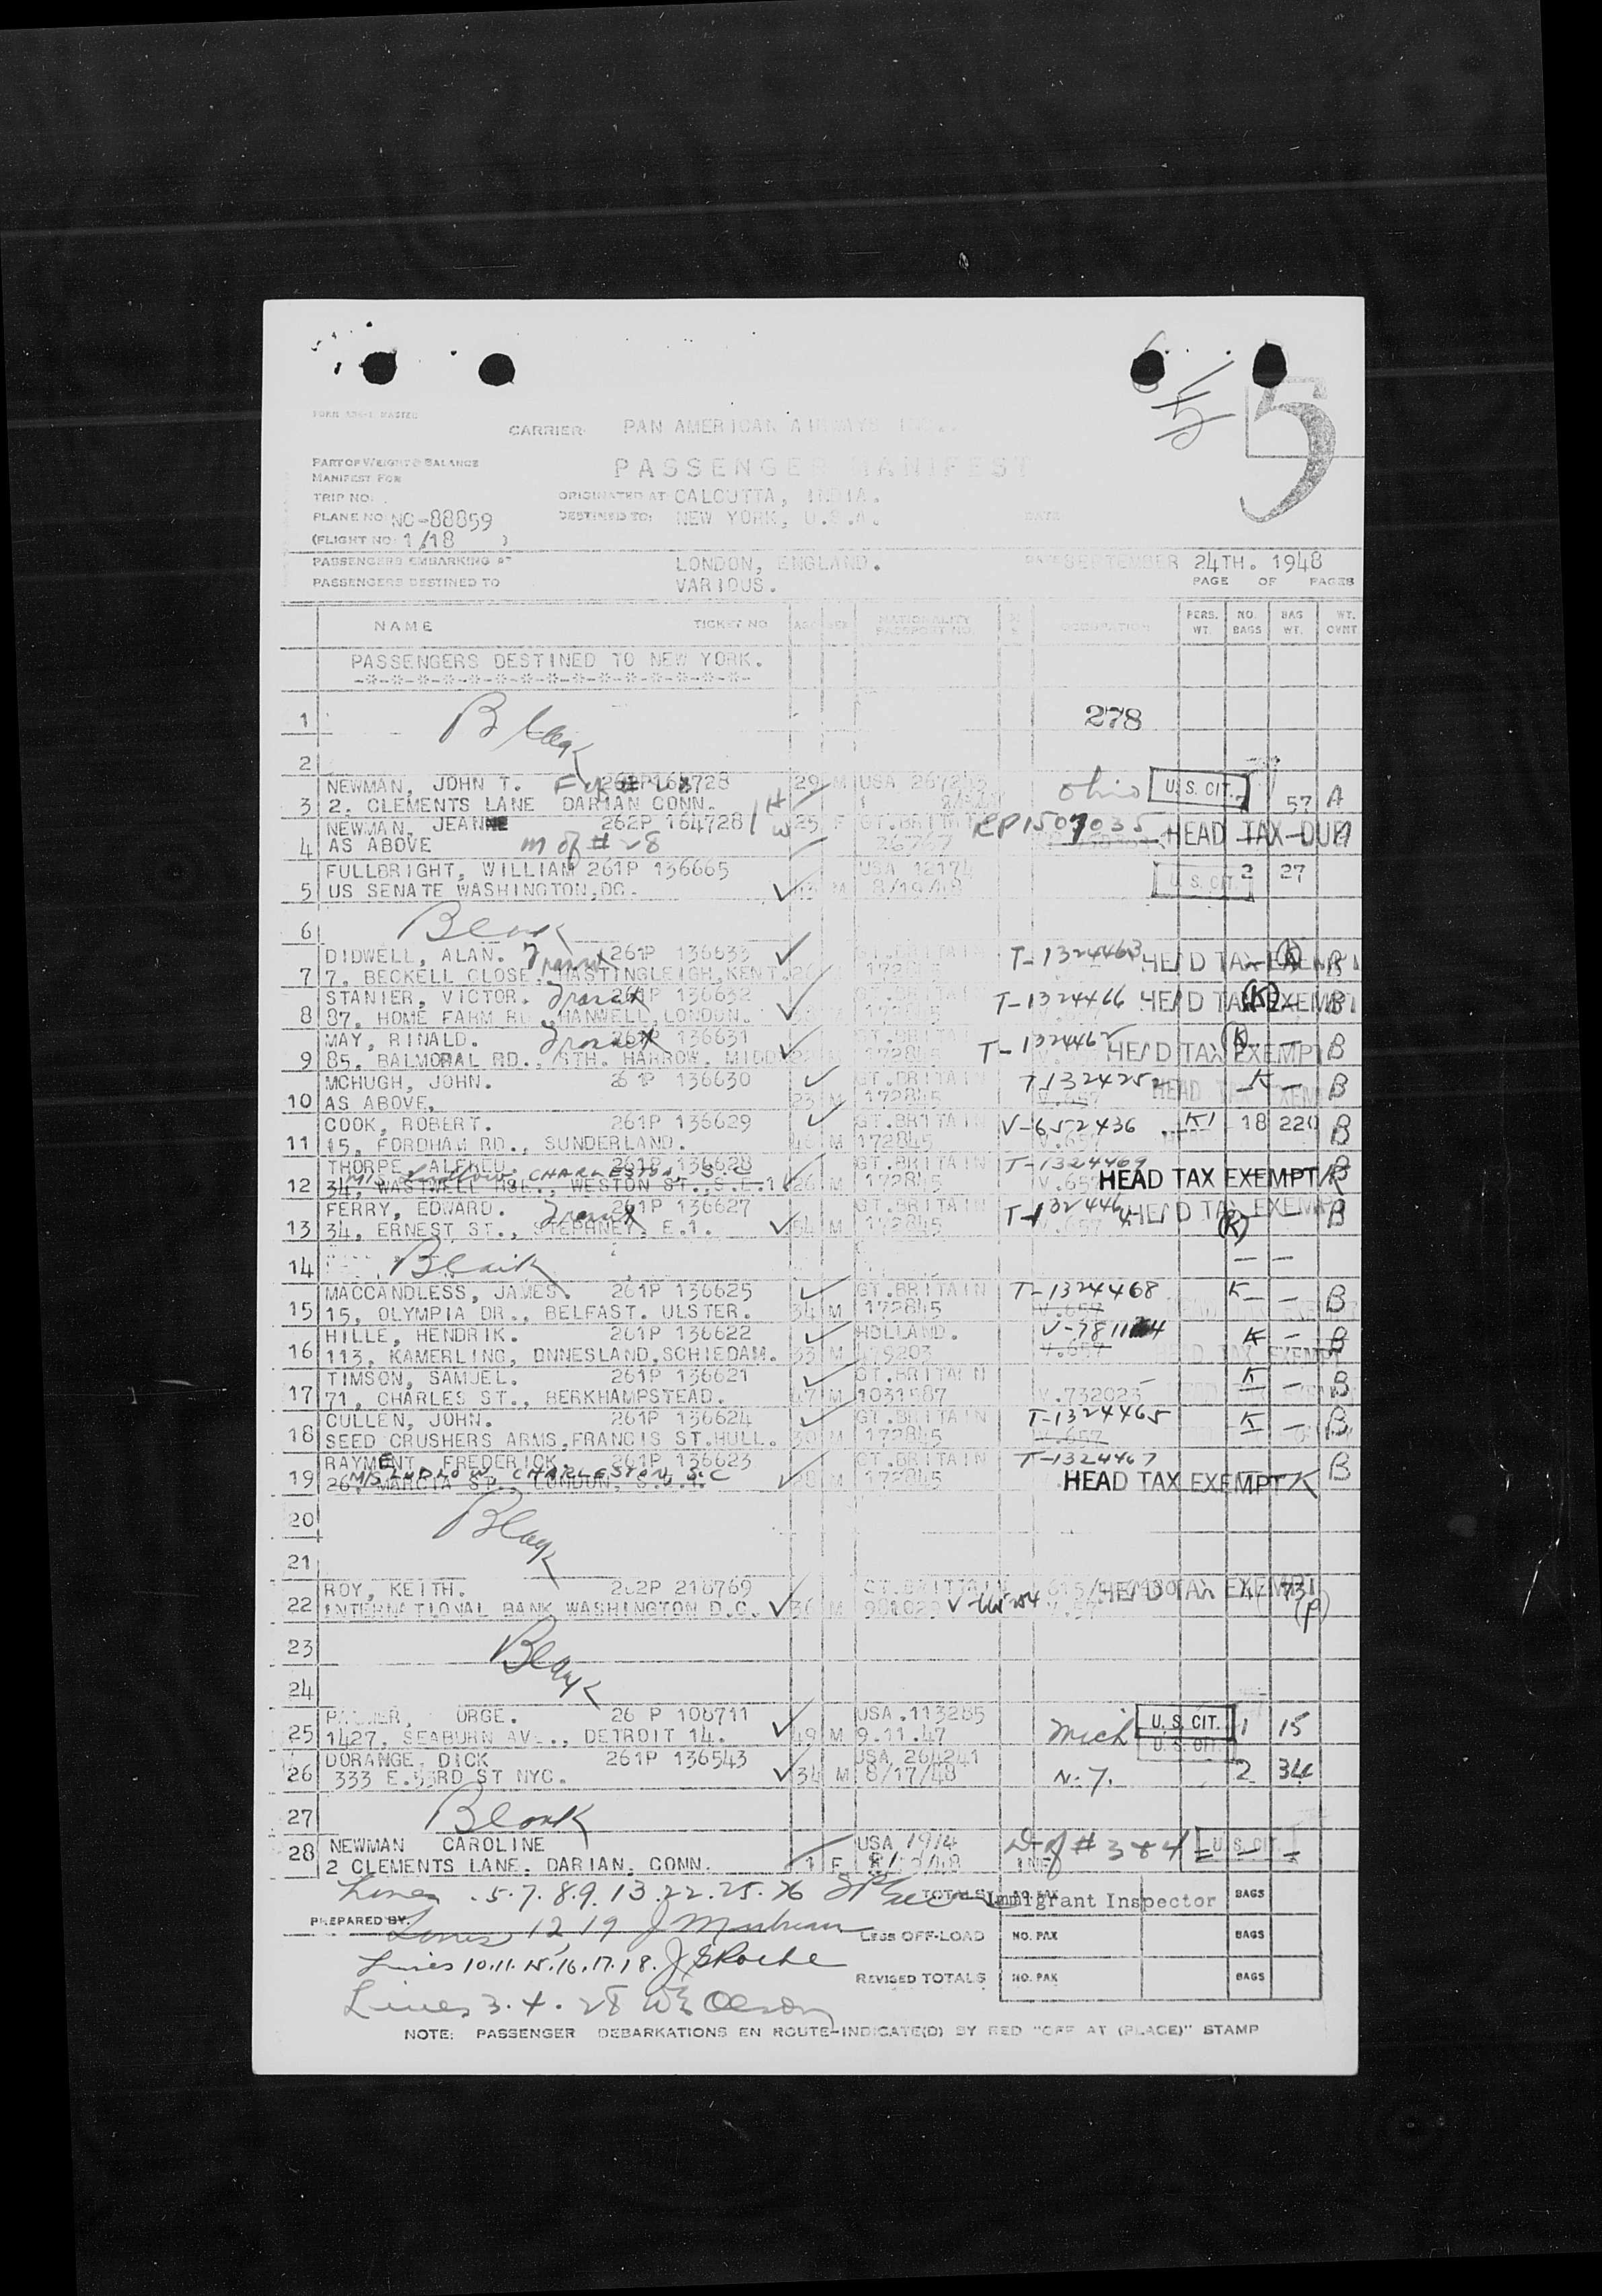 CARRIER: PAN AMERICAN AIRWAYS INC.
PASSENGER MANIFEST
PART OF WEIGHT & BALANCE
MANIFEST FOR
TRIP NO:
ORIGINATED AT CALCUTTA, INDIA.
PLANE NO NC-88859
DESTINED TO: NEW YORK, U.S.A. DATE
(FLIGHT NO: 1/18 )
5
PASSENGERS EMBARKING AT LONDON, ENGLAND. DATE SEPTEMBER 24TH. 1948
PASSENGERS DESTINED TO VARIOUS. PAGE OF PAGES
NAME TICKET NO AGE SEX NATIONALITY PASSPORT NO. OCCUPATION PERS. WT. NO. BAGS BAG WT. WT. OVNT
PASSENGERS DESTINED TO NEW YORK.
-*-*-*-*-*-*-*-*-*-*-*-*-*-*-
1 Blank 278
2
NEWMAN, JOHN T. 164728 29 M USA Ohio U.S. CIT.
3 2. CLEMENTS LANE DARIAN CONN. 57 A
NEWMAN, JEANNE 262P 164728 25 F GT.BRITAIN RP1507035 HEAD TAX DUE
4 AS ABOVE m of # 28
FULLBRIGHT, WILLIAM 261P 136665 USA 12174 2 27
5 US SENATE WASHINGTON,DC. M 8/19/48 U.S. CIT.
6 Blank
DIDWELL, ALAN. Transit 261P 136633 GT.BRITAIN T-1324463 HEAD TAX EXEMPT K B
7 7, BECKELL CLOSE, HASTINGLEIGH,KENT. 172845
STANIER, VICTOR. Transit 261P 136632 GT.BRITAIN T-1324466 HEAD TAX EXEMPT (K) B
8 87, HOME FARM RD., HANWELL,LONDON. 172845
MAY, RINALD. Transit 261P 136631 GT.BRITAIN T-1324462 HEAD TAX EXEMPT K B
9 85, BALMORAL RD., STH. HARROW. MIDD 172845
MCHUGH, JOHN. 261P 136630 GT.BRITAIN T-132425 HEAD TAX EXEMPT K - B
10 AS ABOVE, 23 M 172845 V.657
COOK, ROBERT. 261P 136629 GT.BRITAIN V-652436 K1 18 220 B
11 15, FORDHAM RD., SUNDERLAND. M 172845 V.657
THORPE, ALFRED. 261P 136628 GT.BRITAIN T-1324469 B
M/S Ludlow, CHARLESTON, S.C
12 34, WASTWELL HSE., WESTON ST.,S.E.1 26 M 172845 V.657 HEAD TAX EXEMPT K
FERRY, EDWARD. Transit 261P 136627 GT.BRITAIN T-132446 HEAD TAX EXEMPT
13 34, ERNEST ST., STEPHNEY, E.1. 54 M 172845 V.657 (K) B
14 Blank - -
MACCANDLESS, JAMES. 261P 136625 GT.BRITAIN T-1324468 K - - B
15 15, OLYMPIA DR., BELFAST. ULSTER. 34 M 172845 V.657
HILLE, HENDRIK. 261P 136622 HOLLAND. K - B
16 113, KAMERLING, ONNESLAND,SCHIEDAM. 33 M 479203 V.657 HEAD TAX EXEMPT
TIMSON, SAMUEL. 261P 136621 GT.BRITAIN K - B
17 71, CHARLES ST., BERKHAMPSTEAD. 47 M 1031587 V.732023
CULLEN, JOHN. 261P 136624 GT.BRITAIN T-1324465 K - B
18 SEED CRUSHERS ARMS,FRANCIS ST.HULL. 30 M 172845 V.657
RAYMENT, FREDERICK 261P 136623 GT.BRITAIN T-1324467 B
M/S LUDLOW, CHARLESTON, S.C
19 26, MARCIA ST., LONDON, S.E.1. M 172845 HEAD TAX EXEMPT K
20 Blank
21
ROY, KEITH. 262P 216769 GT.BRITTAIN HEAD TAX EXEMPT 73
22 INTERNATIONAL BANK WASHINGTON D.C. 36 M (P)
23 Blank
24
26 P 108711 USA.113285
25 1427, SEABURN AVE., DETROIT 14. 49 M 9.11.47 Mich U.S. CIT. 1 15
U.S. CIT.
DORANGE, DICK 261P 136543 USA 264241
26 333 E.53RD ST NYC. 34 M 8/17/48 N.Y. 2 34
27 Blank
28 NEWMAN CAROLINE USA D of # 3 & 4 U.S. CIT.
2 CLEMENTS LANE. DARIAN. CONN. 1 F
Lines 5.7.8.9.13.22.25.26 TOTALS NO. PAX Immigrant Inspector BAGS
PREPARED BY: Lines 12, 19 LESS OFF-LOAD NO. PAX BAGS
Lines 10.11.15.16.17.18. J S Roche
REVISED TOTALS NO. PAX BAGS
Lines 3.4.28 W E Olson
NOTE: PASSENGER DEBARKATIONS EN ROUTE-INDICATE(D) BY RED "OFF AT (PLACE)" STAMP